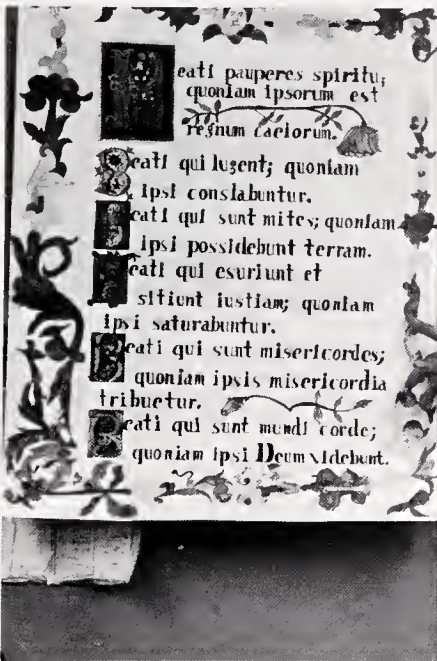 Beati pauperes spiritu;
quoniam ipsorum est
regnum caelorum.
Beati qui lugent; quoniam
ipsi conslabuntur.
Beati qui sunt mites; quoniam
ipsi possidebunt terram.
Beati qui esuriunt et
sitiunt iustiam; quoniam
ipsi saturabuntur.
Beati qui sunt misericordes;
quoniam ipsis misericordia
tribuetur.
Beati qui sunt mundi corde;
quoniam ipsi Deum videbunt.